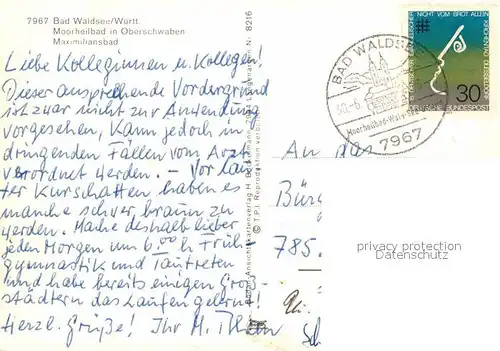 7967 Bad Waldsee/Württ.
Moorheilbad in Oberschwaben
Maximiliansbad
Liebe Kolleginnen u. Kollegen!
Dieser ansprechende Vordergrund
ist zwar nicht zur Anwendung
vorgesehen, kann jedoch in
dringenden Fällen vom Arzt
verordnet werden. – Vor lau-
ter Kurschatten haben es
manche schwer, braun zu
werden. Mache deshalb lieber
jeden Morgen um 6.00 h Früh-
gymnastik und Tautreten
und habe bereits einigen Groß-
städtern das Laufen gelernt!
Herzl. Grüße! Ihr M. Thein
Nr. 8216
© T.P.I. Reproduktion verboten
BAD WALDSEE
Moorheilbad
7967
DER MENSCH LEBT NICHT VOM BROT ALLEIN
30
DEUTSCHE BUNDESPOST
An das
Bür
785.
privacy protection
Datenschutz